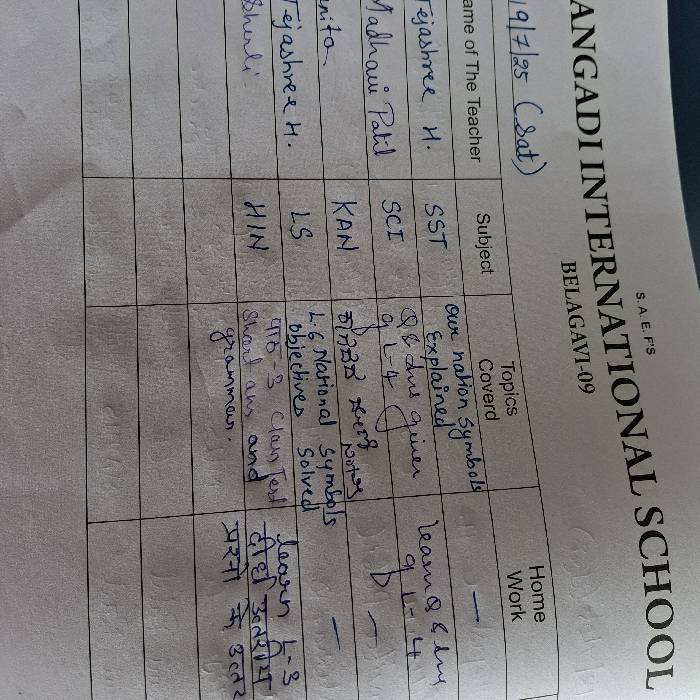 S. A. E. F'S
ANGADI INTERNATIONAL SCHOOL
BELAGAVI-09
19/7/25 (Sat)
ame of The Teacher Subject Topics Coverd Home Work
Tejashree H. SST our nation symbols Explained —
Madhavi Patil SCI Q & Ans given of L-4 learn Q & Ans of L-4
KAN —
Tejashree H. LS L.6 National Symbols objectives Solved —
HIN पाठ-3 Class Test Short ans and grammar. learn L-3 दीर्घ उत्तरीय प्रश्नों के उत्तर